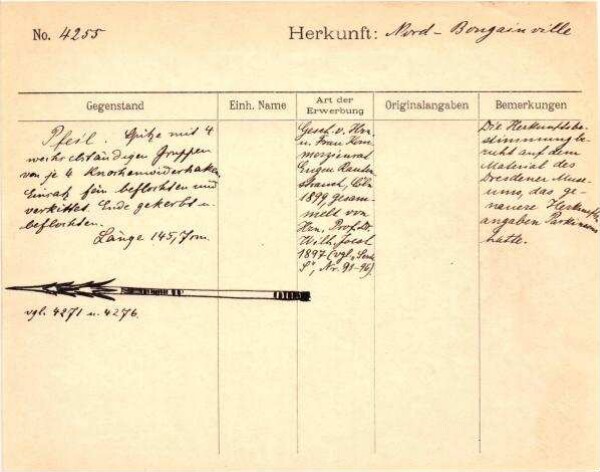 No. 4255
Herkunft: Nord-Bougainville
Gegenstand
Einh. Name
Art der Erwerbung
Originalangaben
Bemerkungen
Pfeil. Spitze mit 4
abständigen Gruppen
von je 4 Knochenwiderhaken
fein beflochten und
verkittet. Ende gekerbt u.
beflochten.
Länge 145,7 cm.
Gesch. v. Hrn.
u. Frau Kom-
merzienrat
Eugen Rauten-
strauch, Cöln
1899, gesam-
melt von
Hrn. Prof. Dr.
Wilh. Joest
1897 (vgl. „
S", Nr. 91-96).
Die Herkunftsbe-
stimmung be-
ruht auf dem
Material des
Dresdener Muse-
ums, das ge-
nauere Herkunfts-
angaben Parkinsons
hatte.
vgl. 4271 u. 4276.